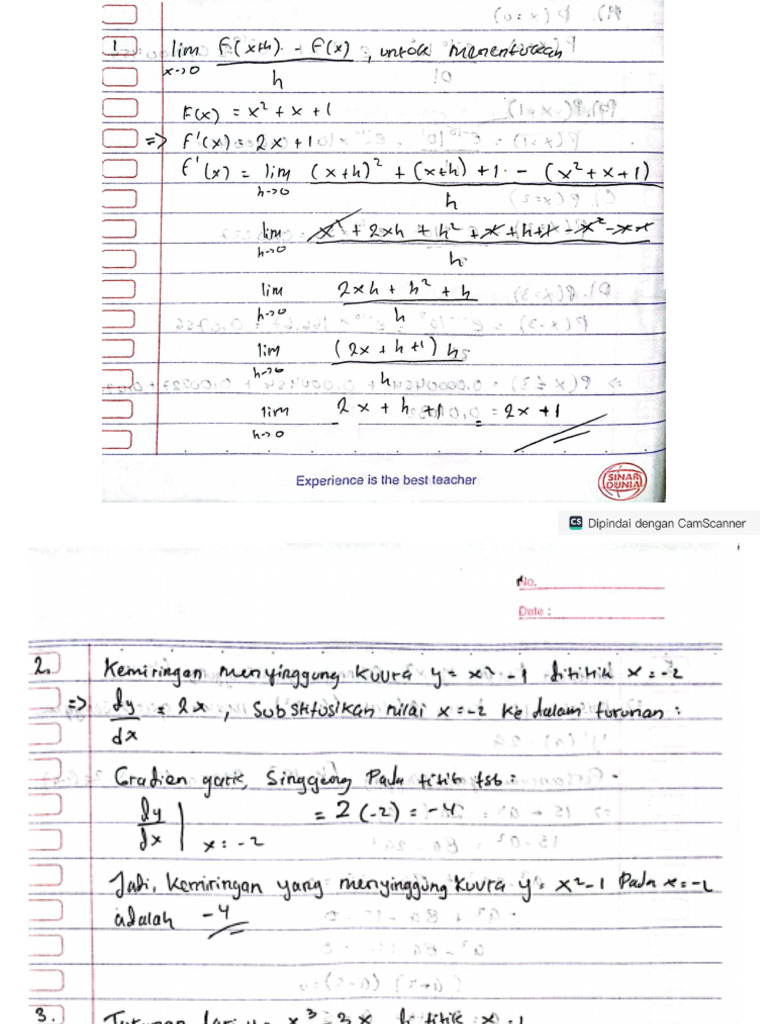 1. lim x→0 F(x+h) - F(x) / h, untuk menentukan
F(x) = x² + x + 1
=> F'(x) = 2x + 1
F'(x) = lim h→0 (x+h)² + (x+h) + 1 - (x² + x + 1) / h
lim h→0 x² + 2xh + h² + x + h + 1 - x² - x - 1 / h
lim h→0 2xh + h² + h / h
lim h→0 (2x + h + 1) h / h
lim h→0 2x + h + 1 = 2x + 1
Experience is the best teacher
SINAR DUNIA
CS Dipindai dengan CamScanner
No.
Date :
2. Kemiringan menyinggung kurva y = x² - 1 dititik x = -2
=> dy/dx = 2x, Substitusikan nilai x = -2 ke dalam turunan :
Gradien garis, Singgung Pada titik tsb :
dy/dx | x = -2 = 2 (-2) = -4
Jadi, kemiringan yang menyinggung kurva y = x² - 1 Pada x = -2
adalah -4
3. Turunan dari y = x³ - 3x di titik x